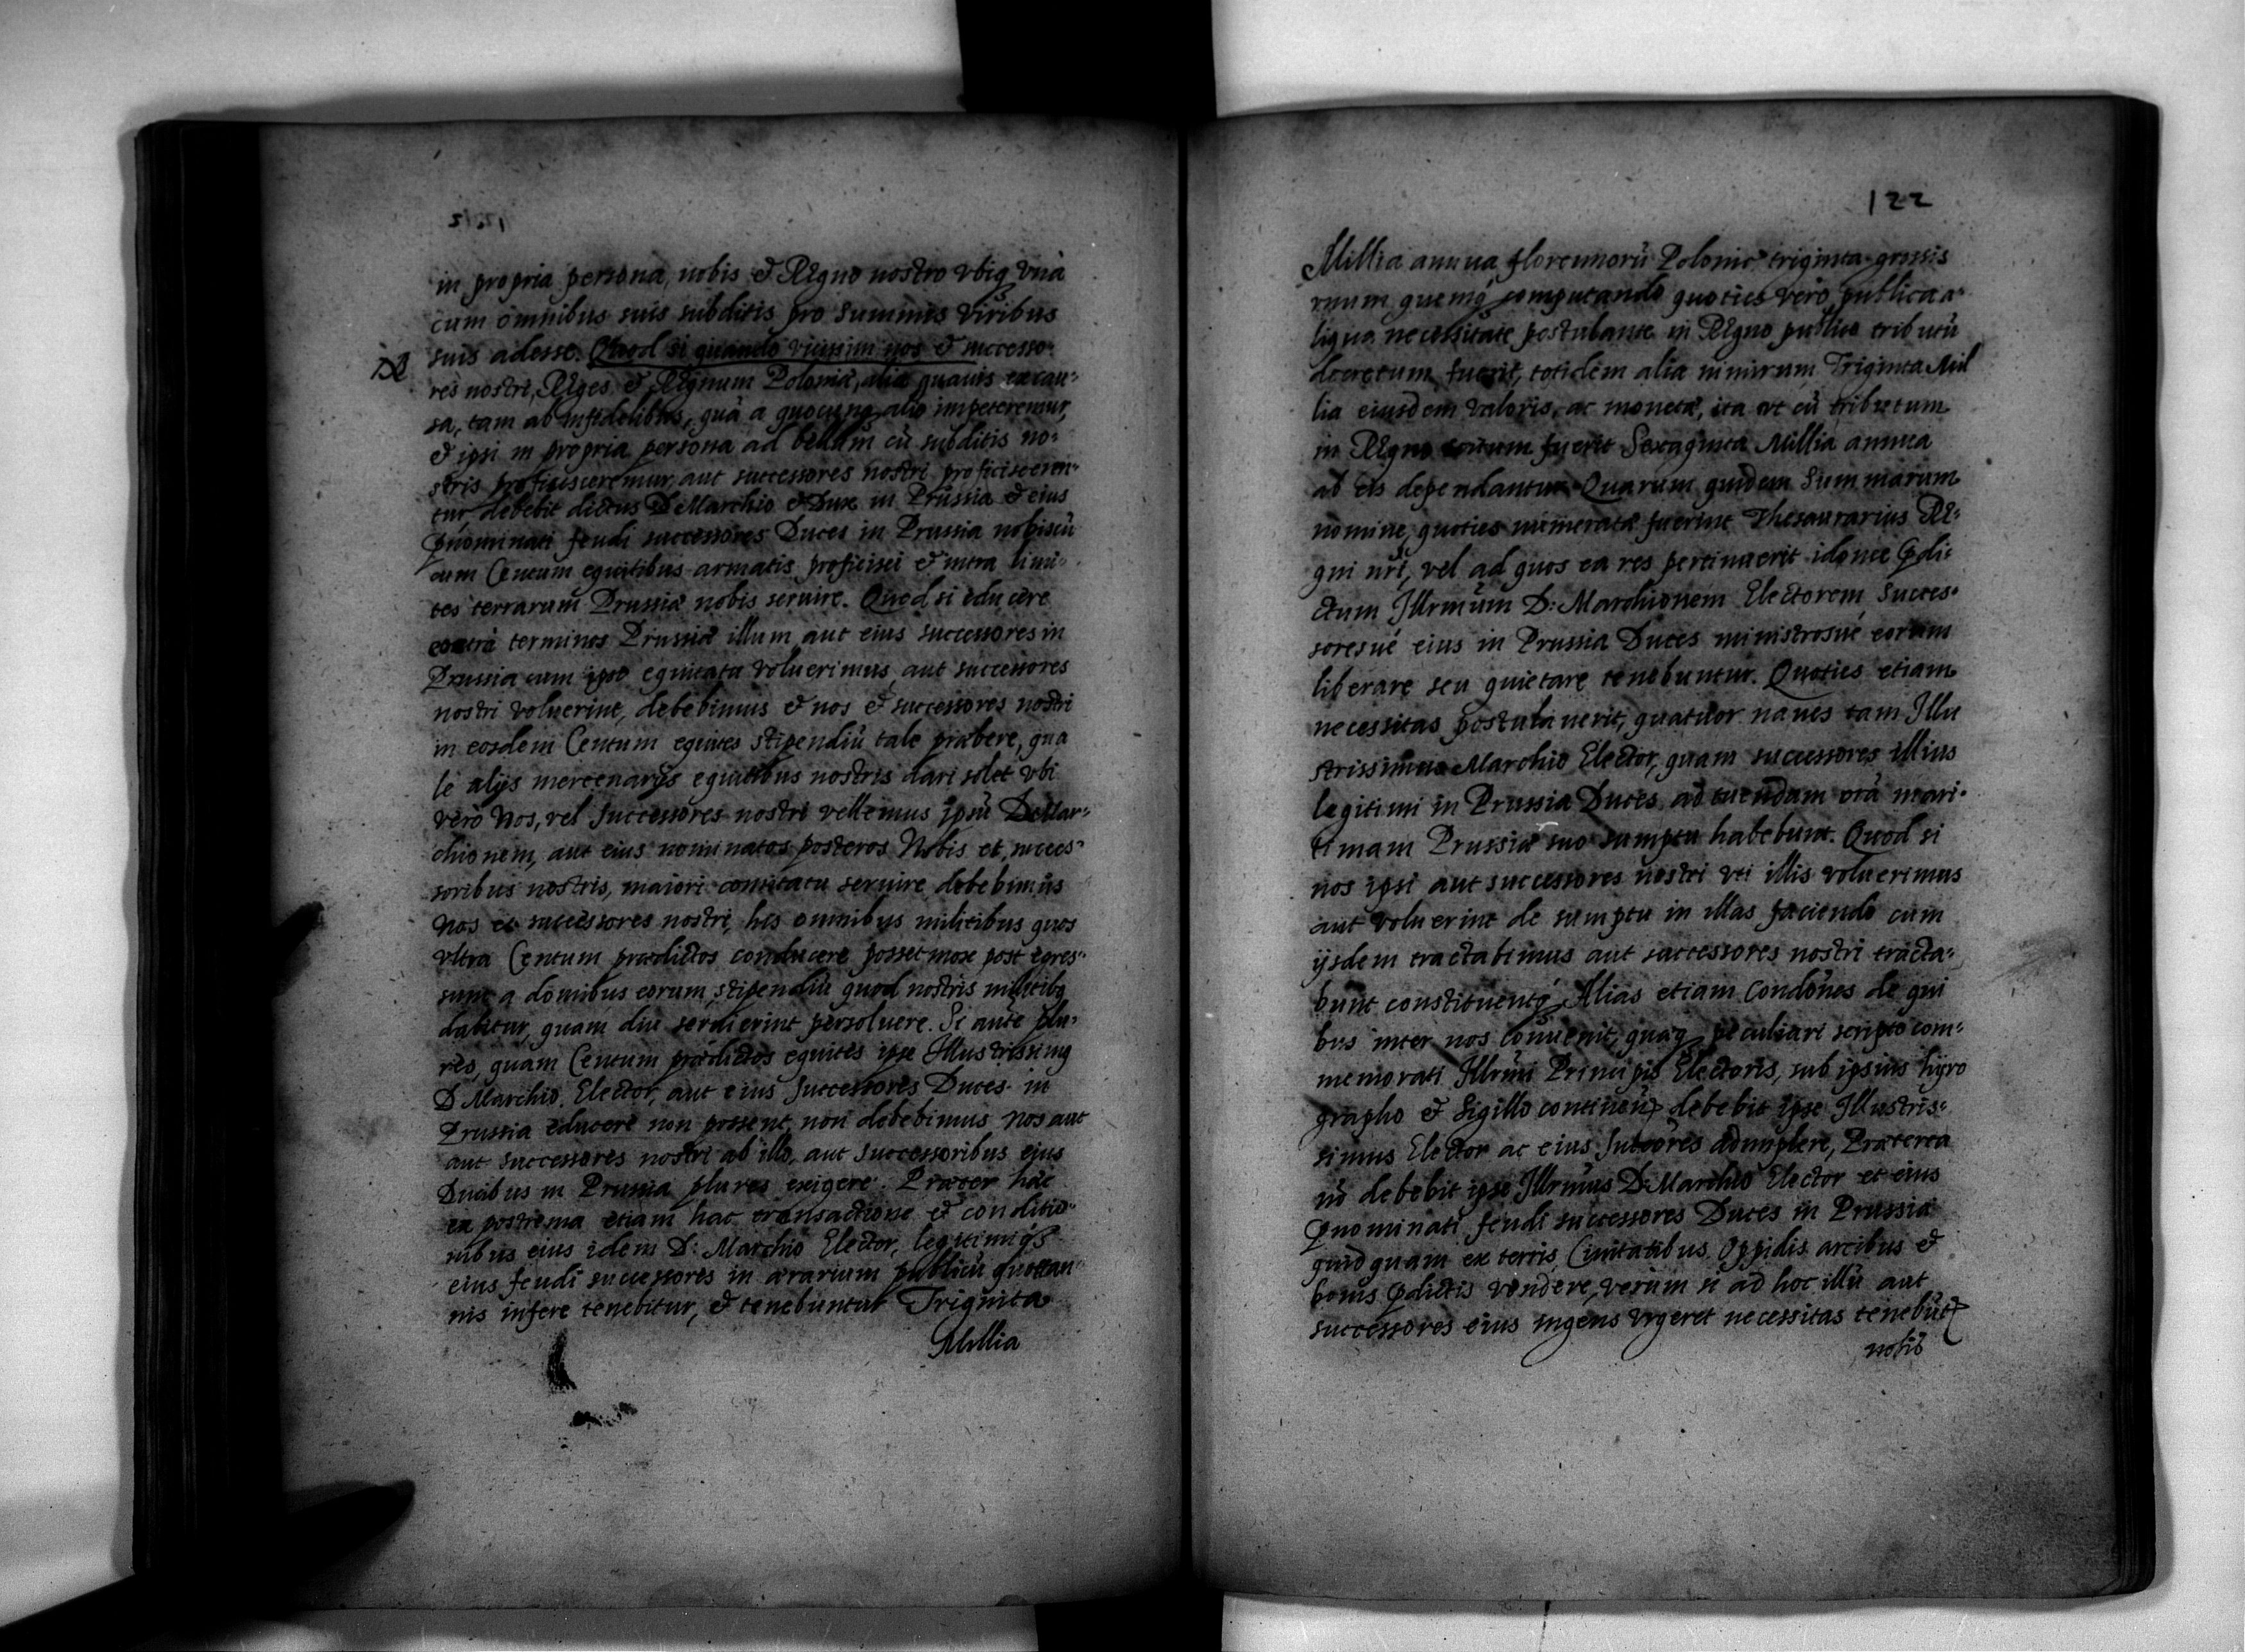 in propria persona, nobis & Regno nostro vbiq vnà
cum omnibus suis subditis pro summis viribus
suis adesse. Quod si quando vicissim nos & successo:
res nostri, Reges & Regnum Poloniæ, alia quauis ex cau:
sa, tam ab infidelibus, quā a quocunq alio impeteremur,
& ipsi in propria persona ad bellum cū subditis no:
stris proficisceremur, aut successores nostri proficisceren:
tur, debebit dictus D Marchio & Dux in Prussia & eius
pnominati feudi successores Duces in Prussia nobiscū
cum Centum equitibus armatis proficisci & intra limi:
tes terrarum Prussiæ nobis seruire. Quod si educere
extrà terminos Prussiæ illum, aut eius successores in
Prussia cum ipso equitatu voluerimus, aut successores
nostri voluerint, debebimus & nos & successores nostri
in eosdem Centum equites stipendiū tale præbere, qua
le alijs mercenarijs equitibus nostris dari solet vbi
verò Nos, vel Successores nostri vellemus ipsū D Mar:
chionem, aut eius nominatos posteros Nobis et succes:
soribus nostris, maiori comitatu seruire debebimus
Nos et successores nostri, his omnibus militibus quos
vltra Centum prædictos conducere posset mox post egres:
sum a domibus eorum, stipendiū quod nostris militibq
dabitur, quam diu seruierint persoluere. Si aute plu:
res, quam Centum prædictos equites ipse Illustrissimq
D Marchio Elector, aut eius Successores Duces in
Prussia educere non possent, non debebimus Nos aut
aut Successores nostri ab illo, aut Successoribus eius
Ducibus in Prussia plures exigere. Præter hæc
ex postrema etiam hac transactione & conditio:
nibus eius idem D: Marchio Elector, legitimiq
eius feudi successores in ærarium publicū quotan:
nis inferre tenebitur, & tenebuntur Triginta
Millia
122
Millia annua florennorū Polonic triginta grossis
vnum quemq computando quoties vero publica a:
liqua necessitate postulante in Regno publico tributū
decretum fuerit, totidem alia nimirum Triginta Mil
lia eiusdem valoris, ac monetæ, ita vt cū tributum
in Regno fuerit Sexaginta Millia annua
ab eis dependantur Quarum quidem Summarum
nomine, quoties numeratæ fuerint Thesaurarius Re:
gni nri, vel ad quos ea res pertinuerit idonee pdi:
ctum Illrmum D: Marchionem Electorem Succes:
soresué eius in Prussia Duces ministrosué eorum
liberare seu quietare tenebuntur. Quoties etiam
necessitas postulauerit, quatuor naues tam Illu
strissimus Marchio Elector, quam successores illius
legitimi in Prussia Duces ad tuendam orā mari:
timam Prussiæ suo sumptu habebunt. Quod si
nos ipsi aut successores nostri vti illis voluerimus
aut voluerint de sumptu in illas faciendo cum
ijsdem tractabimus aut successores nostri tracta:
bunt constituentq Alias etiam Condōnes de qui
bus inter nos conuenit, quæq peculiari scripto com:
memorati Illrmi Principis Electoris, sub ipsius hyro
grapho & Sigillo continent, debebit ipse Illustris:
simus Elector ac eius Succōres adimplere, Præterea
nō debebit ipse Illrmus D: Marchio Elector et eius
pnominati feudi successores Duces in Prussia
quidquam ex terris Ciuitatibus Oppidis arcibus &
bonis pdictis vendere, verum si ad hoc illū aut
successores eius ingens vrgeret necessitas tenebūt
nobis